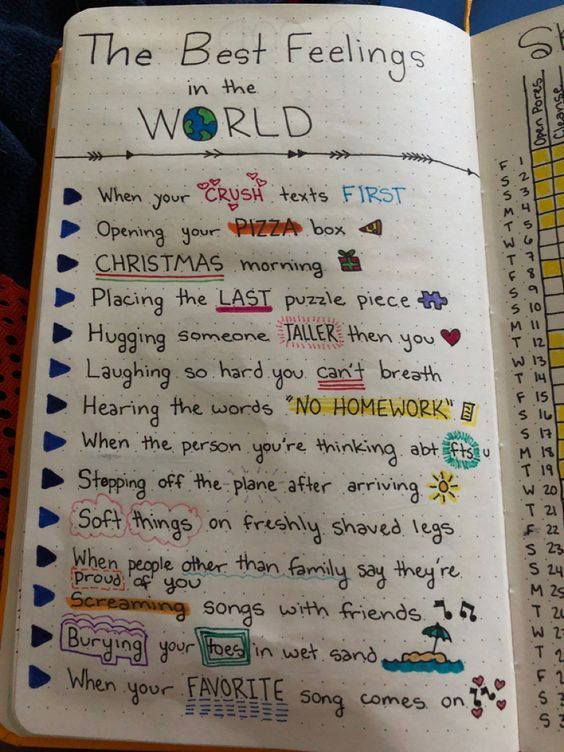 The Best Feelings
in the
WORLD
When your CRUSH texts FIRST
Opening your PIZZA box
CHRISTMAS morning
Placing the LAST puzzle piece
Hugging someone TALLER then you
Laughing so hard you can't breath
Hearing the words "NO HOMEWORK"
When the person you're thinking abt fts u
Stepping off the plane after arriving
Soft things on freshly shaved legs
When people other than family say they're
proud of you
Screaming songs with friends
Burying your toes in wet sand
When your FAVORITE song comes on
Open Pores
Cleanse
F 1
S 2
S 3
M 4
T 5
W 6
T 7
F 8
S 9
S 10
M 11
T 12
W 13
T 14
F 15
S 16
S 17
M 18
T 19
W 20
T 21
F 22
S 23
S 24
M 25
T
W
T
F
S
S